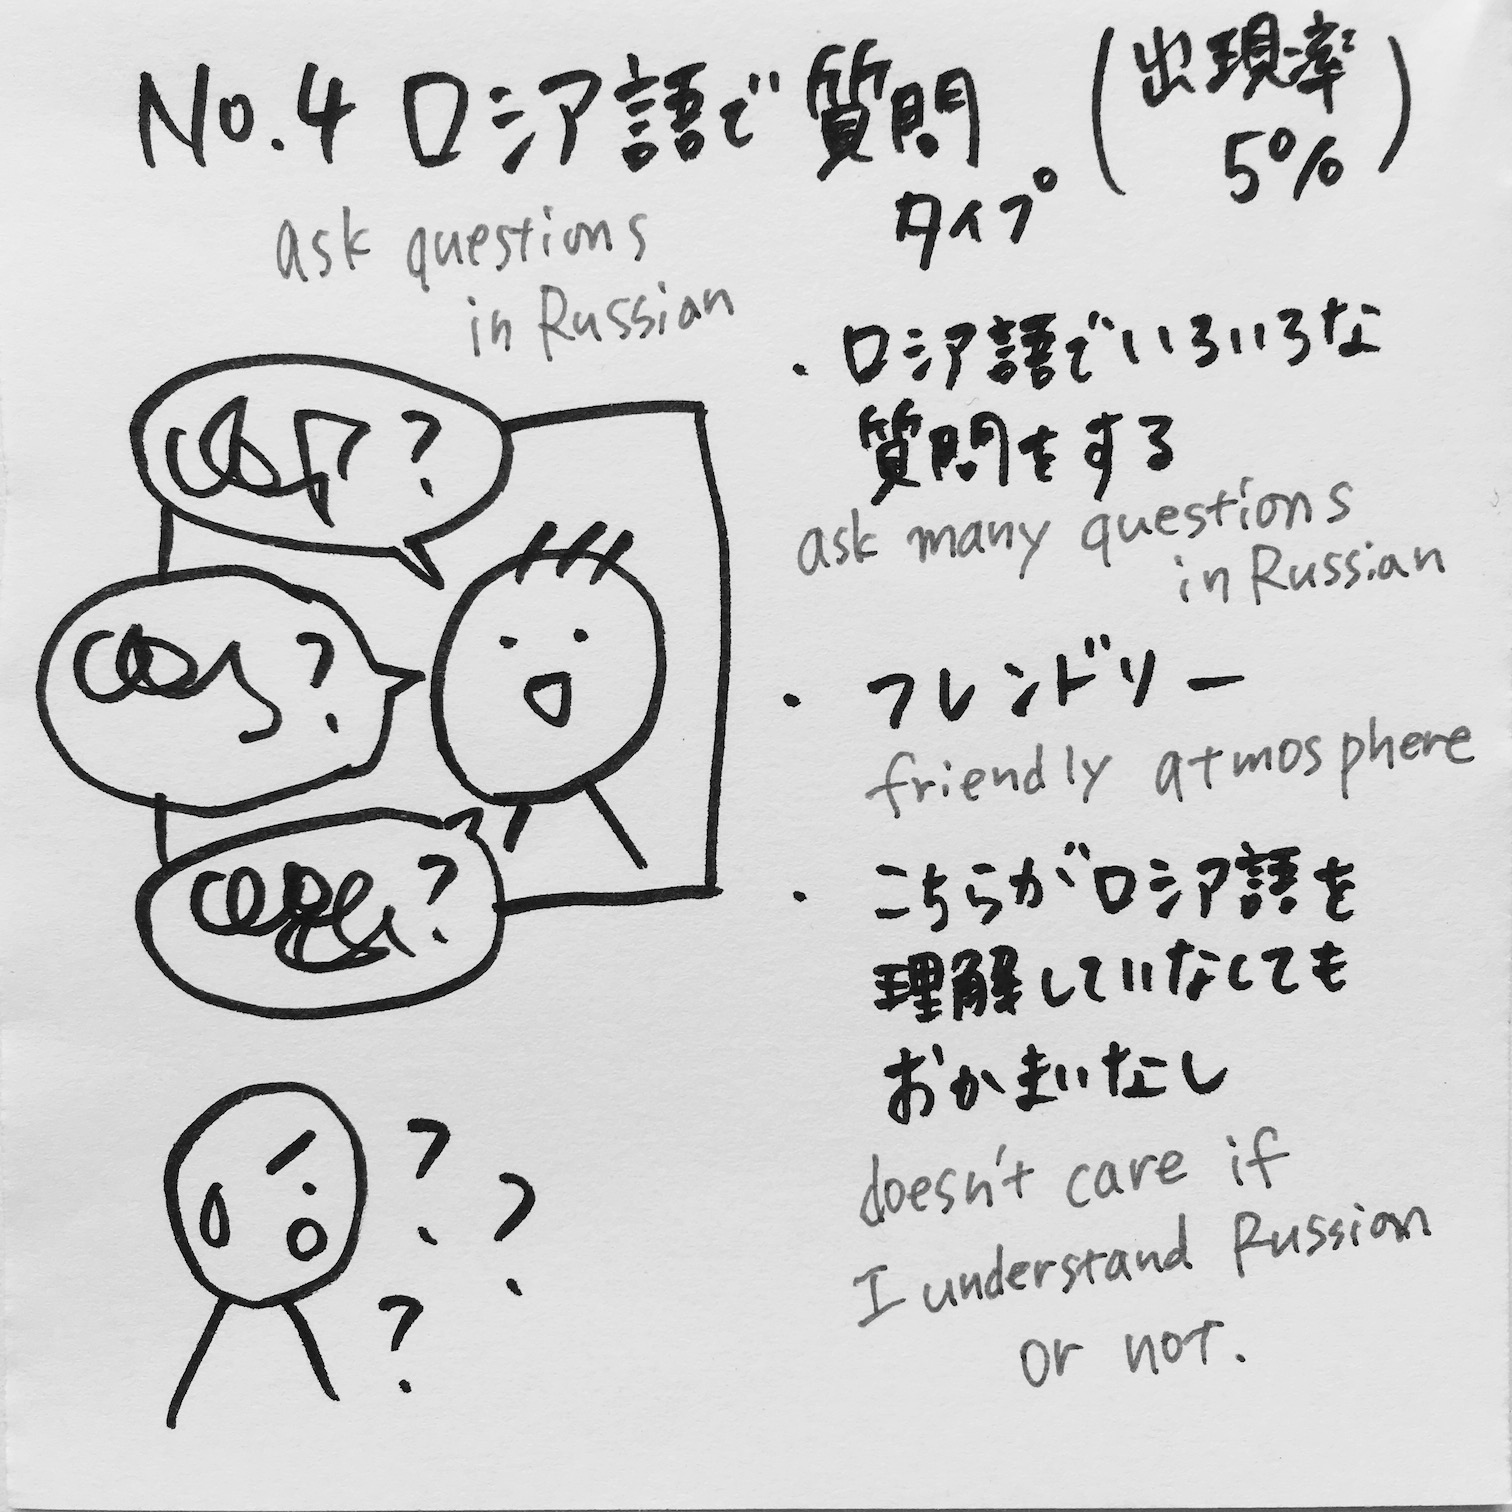 No.4 ロシア語で質問
タイプ
(出現率
5%)
ask questions
in Russian
・ロシア語でいろいろな
質問をする
ask many questions
in Russian
・フレンドリー
friendly atmosphere
・こちらがロシア語を
理解していなくても
おかまいなし
doesn't care if
I understand Russian
or not.
?
?
?
?
?
?